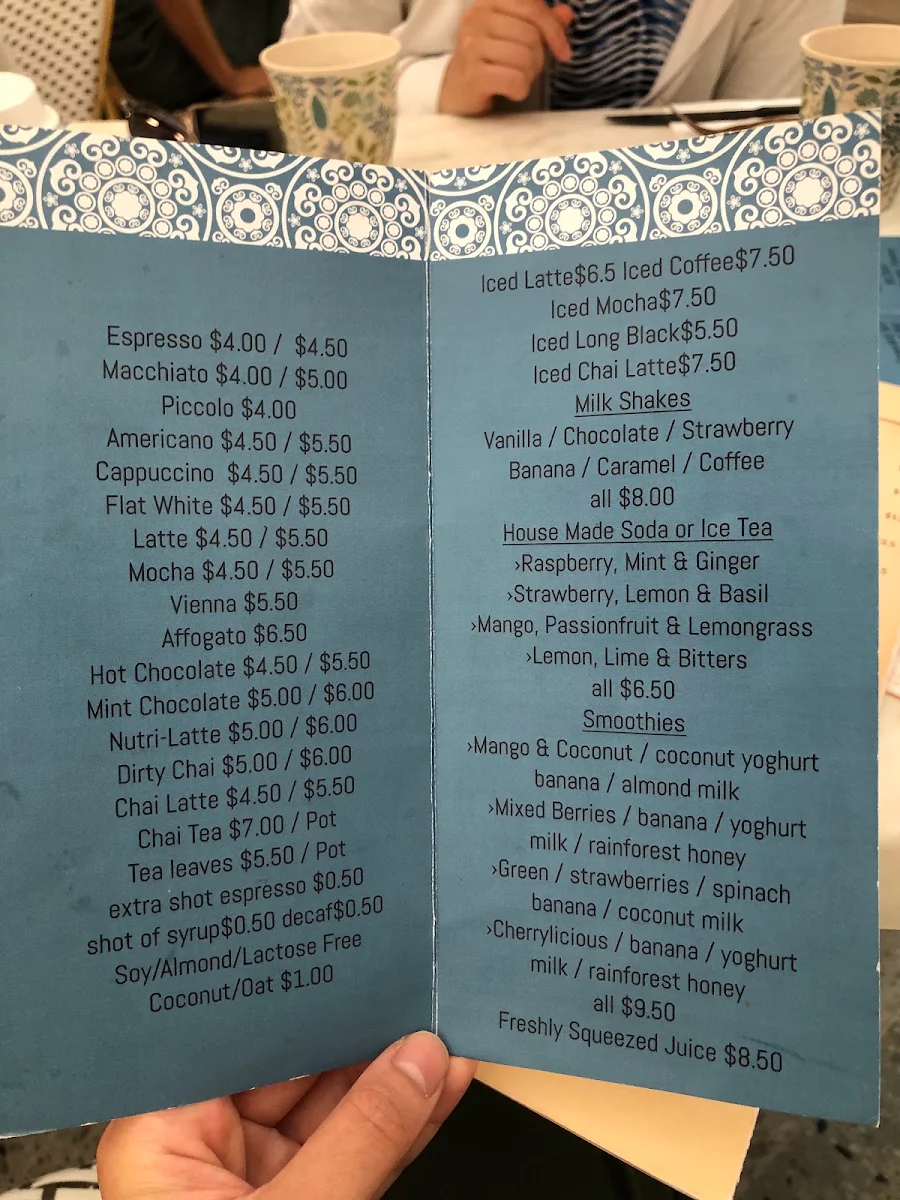 Espresso $4.00 / $4.50
Macchiato $4.00 / $5.00
Piccolo $4.00
Americano $4.50 / $5.50
Cappuccino $4.50 / $5.50
Flat White $4.50 / $5.50
Latte $4.50 / $5.50
Mocha $4.50 / $5.50
Vienna $5.50
Affogato $6.50
Hot Chocolate $4.50 / $5.50
Mint Chocolate $5.00 / $6.00
Nutri-Latte $5.00 / $6.00
Dirty Chai $5.00 / $6.00
Chai Latte $4.50 / $5.50
Chai Tea $7.00 / Pot
Tea leaves $5.50 / Pot
extra shot espresso $0.50
shot of syrup$0.50 decaf$0.50
Soy/Almond/Lactose Free
Coconut/Oat $1.00
Iced Latte$6.5 Iced Coffee$7.50
Iced Mocha$7.50
Iced Long Black$5.50
Iced Chai Latte$7.50
Milk Shakes
Vanilla / Chocolate / Strawberry
Banana / Caramel / Coffee
all $8.00
House Made Soda or Ice Tea
›Raspberry, Mint & Ginger
›Strawberry, Lemon & Basil
›Mango, Passionfruit & Lemongrass
›Lemon, Lime & Bitters
all $6.50
Smoothies
›Mango & Coconut / coconut yoghurt
banana / almond milk
›Mixed Berries / banana / yoghurt
milk / rainforest honey
›Green / strawberries / spinach
banana / coconut milk
›Cherrylicious / banana / yoghurt
milk / rainforest honey
all $9.50
Freshly Squeezed Juice $8.50